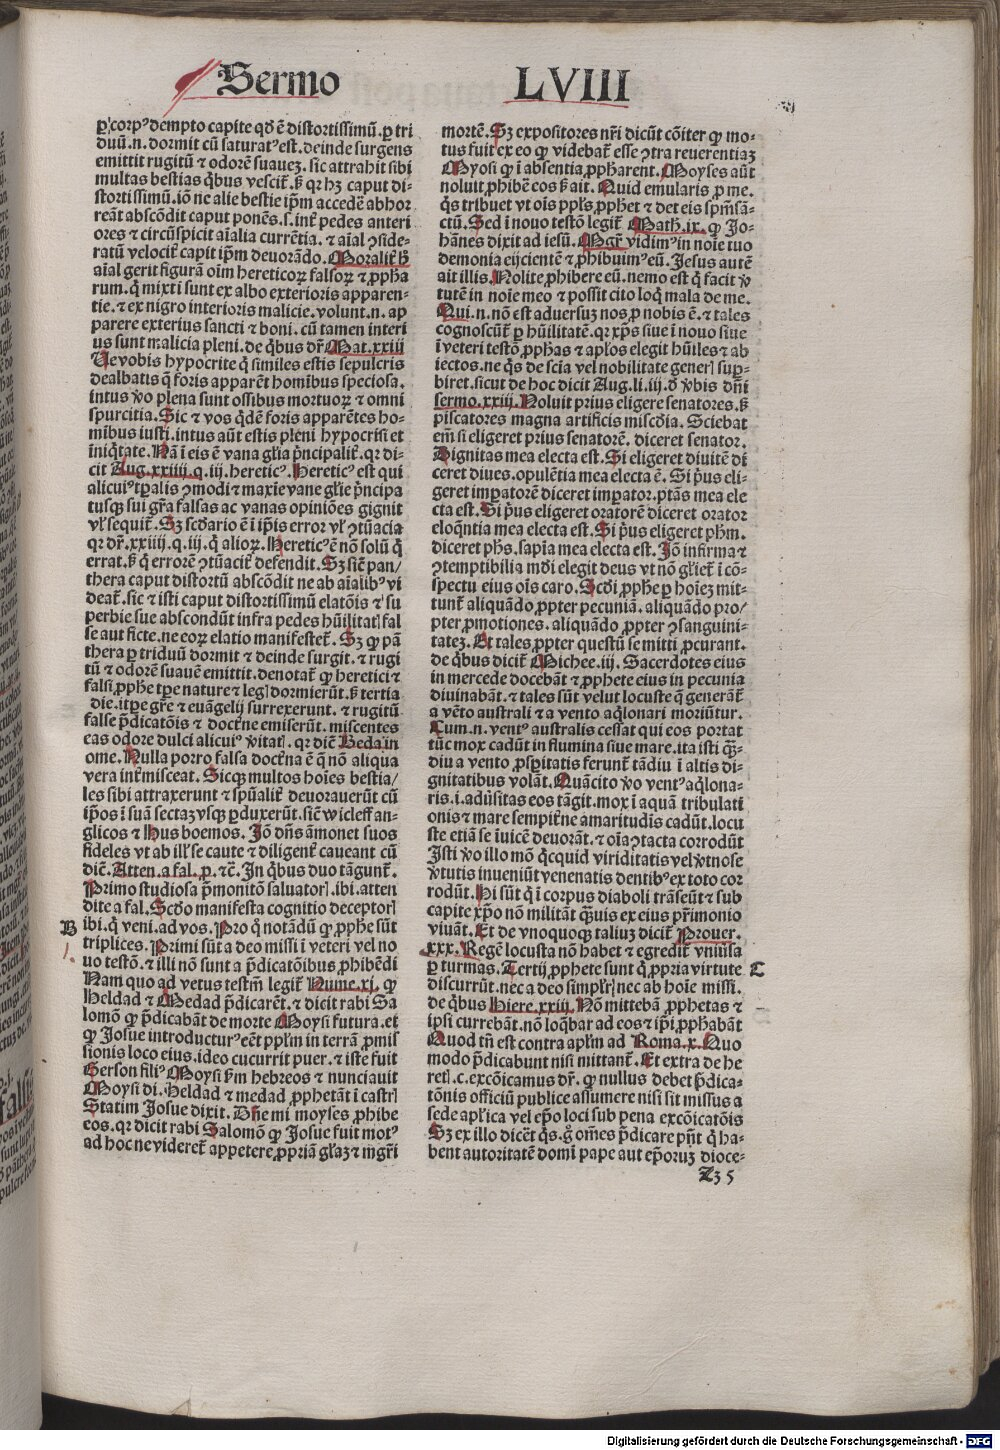 Sermo LVIII
ꝑ corpꝰ dempto capite qd̓ ē distortissimū. ꝑ tri
duū.n. dormit cū saturatꝰ est. deinde surgens
emittit rugitū ⁊ odorē suauez. sic attrahit sibi
multas bestias q̄bus vescit̄. ſꝫ qꝛ hꝫ caput di-
stortissimū. iō ne alie bestie ip̄m accedē abhor
reāt abscōdit caput ponēs.s. int̄ pedes anteri
ores ⁊ circūspicit aīalia currētia. ⁊ aīal ꝯside-
ratū velocit̄ capit ip̄m deuorādo. Moralit̄ h̓
aīal gerit figurā oīm hereticoꝝ falsoꝝ ⁊ ꝓpha
rum. q̄ mixti sunt ex albo exterioris apparen-
tie. ⁊ ex nigro interioris malicie. volunt.n. ap
parere exterius sancti ⁊ boni. cū tamen interi
us sunt malicia pleni. de q̄bus dr̄. Mat.xxiii
Ve vobis hypocrite q̄ similes estis sepulcris
dealbatis q̄ foris apparēt homibus speciosa.
intus v̓o plena sunt ossibus mortuoꝝ ⁊ omni
spurcitia. Sic ⁊ vos qdē foris apparētes ho-
mībus iusti. intus aūt estis pleni hypocrisi et
īniq̄tate. Nā ī eis ē vana gl̓ia p̄ncipalit̄. qꝛ di-
cit Aug.xxiiii.q.iij. hereticꝰ. Hereticꝰ est qui
alicuiꝰ tꝑalis ꝯmodi ⁊ maxīe vane gl̓ie p̄ncipa
tusqꝫ sui gr̄a falsas ac vanas opiniōes gignit
vl̓ sequit̄. Sꝫ scd̓ario ē ī ip̄is error vl̓ ꝯtūacia
qꝛ dr̄.xxiiij.q.iij. q̄ alioꝝ. Hereticꝰ ē nō solū q̄
errat. ſꝫ q̄ errorē ꝯtūacit̄ defendit. Sꝫ sic̄ pan/
thera caput distortū abscōdit ne ab aīalibꝰ vi
deat̄. sic ⁊ isti caput distortissimū elatōis ⁊ su
perbie sue abscondūt infra pedes hūilitatꝭ fal
se aut ficte. ne eoꝝ elatio manifestet̄. Sꝫ ꝙ pā
thera ꝑ triduū dormit ⁊ deinde surgit. ⁊ rugi
tū ⁊ odorē suauē emittit. denotat̄ ꝙ heretici ⁊
falsi ꝓph̓e tꝑe nature ⁊ legꝭ dormierūt. ſꝫ tertia
die. i. tꝑe gr̄e ⁊ euāgelij surrexerunt. ⁊ rugitū
false p̄dicatōis ⁊ doctr̄ne emiserūt. miscentes
eas odore dulci alicuiꝰ v̓itatꝭ. qꝛ dic̄ Beda in
ome. Nulla porro falsa doctr̄na ē q̄ nō aliqua
vera int̄misceat. Sicqꝫ multos hoīes bestia/
les sibi attraxerunt ⁊ sp̄ualit̄ deuorauerūt cū
ip̄os ī suā sectaꝫ vsqꝫ ꝑduxerūt. sic̄ wicleff an-
glicos ⁊ Hus boemos. Iō dn̄s āmonet suos
fideles vt ab illꝭ se caute ⁊ diligent̄ caueant cū
dic̄. Atten. a fal. ꝓ. ⁊c̄. In q̄bus duo tāgunt̄.
Primo studiosa p̄monitō saluatorꝭ. ibi. atten
dite a fal. Scd̓o manifesta cognitio deceptorꝭ
B ibi. q̄ veni. ad vos. Pro q̄ notādū ꝙ ꝓph̓e sūt
triplices. Primi sūt a deo missi ī veteri vel no
uo testō. ⁊ illi nō sunt a p̄dicatōibus ꝓhibēdi
Nam quo ad vetus testm̄ legit̄ Nume.xi. ꝙ
Heldad ⁊ Medad p̄dicarēt. ⁊ dicit rabi Sa
lomō ꝙ p̄dicabāt de morte Moysi futura. et
ꝙ Josue introducturꝰ eēt ppl̓m in terrā ꝓmis
sionis loco eius. ideo cucurrit puer. ⁊ iste fuit
Gerson filiꝰ Moysi ſm hebreos ⁊ nunciauit
Moysi di. Heldad ⁊ medad ꝓphetāt ī castrꝭ
Statim Josue dixit. Dn̄e mi moyses ꝓhibe
eos. qꝛ dicit rabi Salomō ꝙ Josue fuit motꝰ
ad hoc ne videret̄ appetere ꝓpriā gl̓iaꝫ ⁊ mgr̄i
mortē. Sꝫ expositores nr̄i dicūt cōiter ꝙ mo-
tus fuit ex eo ꝙ videbat̄ esse ꝯtra reuerentiaꝫ
Moysi ꝙ ī absentia ꝓpharent. Moyses aūt
noluit ꝓhibē eos ſꝫ ait. Quid emularis ꝓ me.
q̄s tribuet vt oīs ppl̓s ꝓph̓et ⁊ det eis sp̄m sā-
ctū. Sed ī nouo testō legit̄ Math.ix. ꝙ Jo-
hānes dixit ad iesū. Mgr̄ vidimꝰ in noīe tuo
demonia eijcientē ⁊ ꝓhibuimꝰ eū. Jesus autē
ait illis. Nolite ꝓhibere eū. nemo est q̄ facit v̓
tutē in noīe meo ⁊ possit cito loq̄ mala de me.
Qui.n. nō est aduersuꝫ nos ꝓ nobis ē. ⁊ tales
cognoscūt̄ ꝑ hūilitatē. qꝛ xp̄s siue ī nouo siue
ī veteri testō ꝓphas ⁊ apl̓os elegit hūiles ⁊ ab
iectos. ne q̄s de scīa vel nobilitate generꝭ suꝑ-
biret. sicut de hoc dicit Aug. li.iij. d̓ v̓bis dn̄i
sermo.xxiij. Noluit prius eligere senatores. ſꝫ
piscatores magna artificis miscd̓ia. Sciebat
em̄ si eligeret prius senatorē. diceret senator.
Dignitas mea electa est. Si eligeret diuitē di
ceret diues. opulētia mea electa ē. Si p̄us eli-
geret impatorē diceret impator. ptās mea ele
cta est. Si p̄us eligeret oratorē diceret orator
eloq̄ntia mea electa est. Si p̄us eligeret ph̓m.
diceret ph̓s. sapīa mea electa est. Iō infirma ⁊
ꝯtemptibilia mūdi elegit deus vt nō gl̓iet̄ ī cō-
spectu eius oīs caro. Scd̓i ꝓph̓e ꝑ hoīez mit-
tunt̄ aliquādo ꝓpter pecuniā. aliquādo pro/
pter ꝓmotiones. aliquādo ꝓpter ꝯsanguini-
tateꝫ. Et tales ꝓpter questū se mitti ꝓcurant.
de q̄bus dicit̄ Michee.iij. Sacerdotes eius
in mercede docebāt ⁊ ꝓphete eius in pecunia
diuinabāt. ⁊ tales sūt velut locuste q̄ generāt̄
a vēto australi ⁊ a vento aq̄lonari moriūtur.
Cum.n. ventꝰ australis cessat qui eos portat
tūc mox cadūt in flumina siue mare. ita isti q̄ꝫ-
diu a vento ꝓsꝑitatis ferunt̄ tādiu ī altis di-
gnitatibus volāt. Quācito v̓o ventꝰ aq̄lona-
ris.i. aduersitas eos tāgit. mox ī aquā tribulati
onis ⁊ mare sempit̄ne amaritudīs cadūt. locu
ste etiā se īuicē deuorāt. ⁊ oīa ꝯtacta corrodūt
Isti v̓o illo mō q̄cquid viriditatis vel v̓tuose
v̓tutis inueniūt venenatis dentibꝰ ex toto cor
rodūt. Hi sūt q̄ ī corpus diaboli trāseūt ⁊ sub
capite xp̄o nō militāt q̄uis ex eius pr̄imonio
viuāt. Et de vnoquoqꝫ taliuꝫ dicit̄ Prouer.
xxx. Regē locusta nō habet ⁊ egredit̄ vniu̓sa
ꝑ turmas. Tertij ꝓphete sunt q̄ ꝓpria virtute C
discurrūt. nec a deo simplrꝭ nec ab hoīe missi.
de q̄bus Hiere.xxiij. Nō mittebā ꝓphetas ⁊
ipsi currebāt. nō loq̄bar ad eos ⁊ ip̄i ꝓphabāt
Quod tn̄ est contra apl̓m ad Roma.x. Quo
modo p̄dicabunt nisi mittant̄. Et extra de he
retꝭ.c. excōicamus dr̄. ꝙ nullus debet p̄dica-
tōnis officiū publice assumere nisi sit missus a
sede apl̓ica vel ep̄o loci sub pena excōicatōis
Sꝫ ex illo dicēt q̄s. g̊ om̄es p̄dicare pn̄t q̄ ha-
bent autoritatē domī pape aut ep̄oruꝫ dioce-
Z 3 5
Digitalisierung gefördert durch die Deutsche Forschungsgemeinschaft - DFG